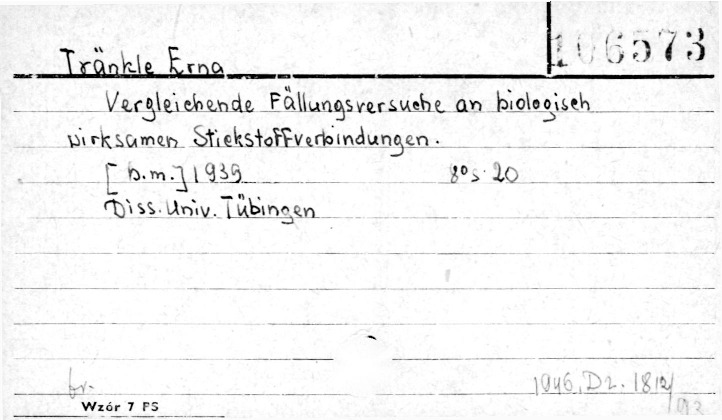 106573
Tränkle Erna
Vergleichende Fällungsversuche an biologisch
wirksamen Stickstoffverbindungen.
[b.m.] 1939 8° s. 20
Diss. Univ. Tübingen
br.
1946. Dz. 1812/
Wzór 7 PS